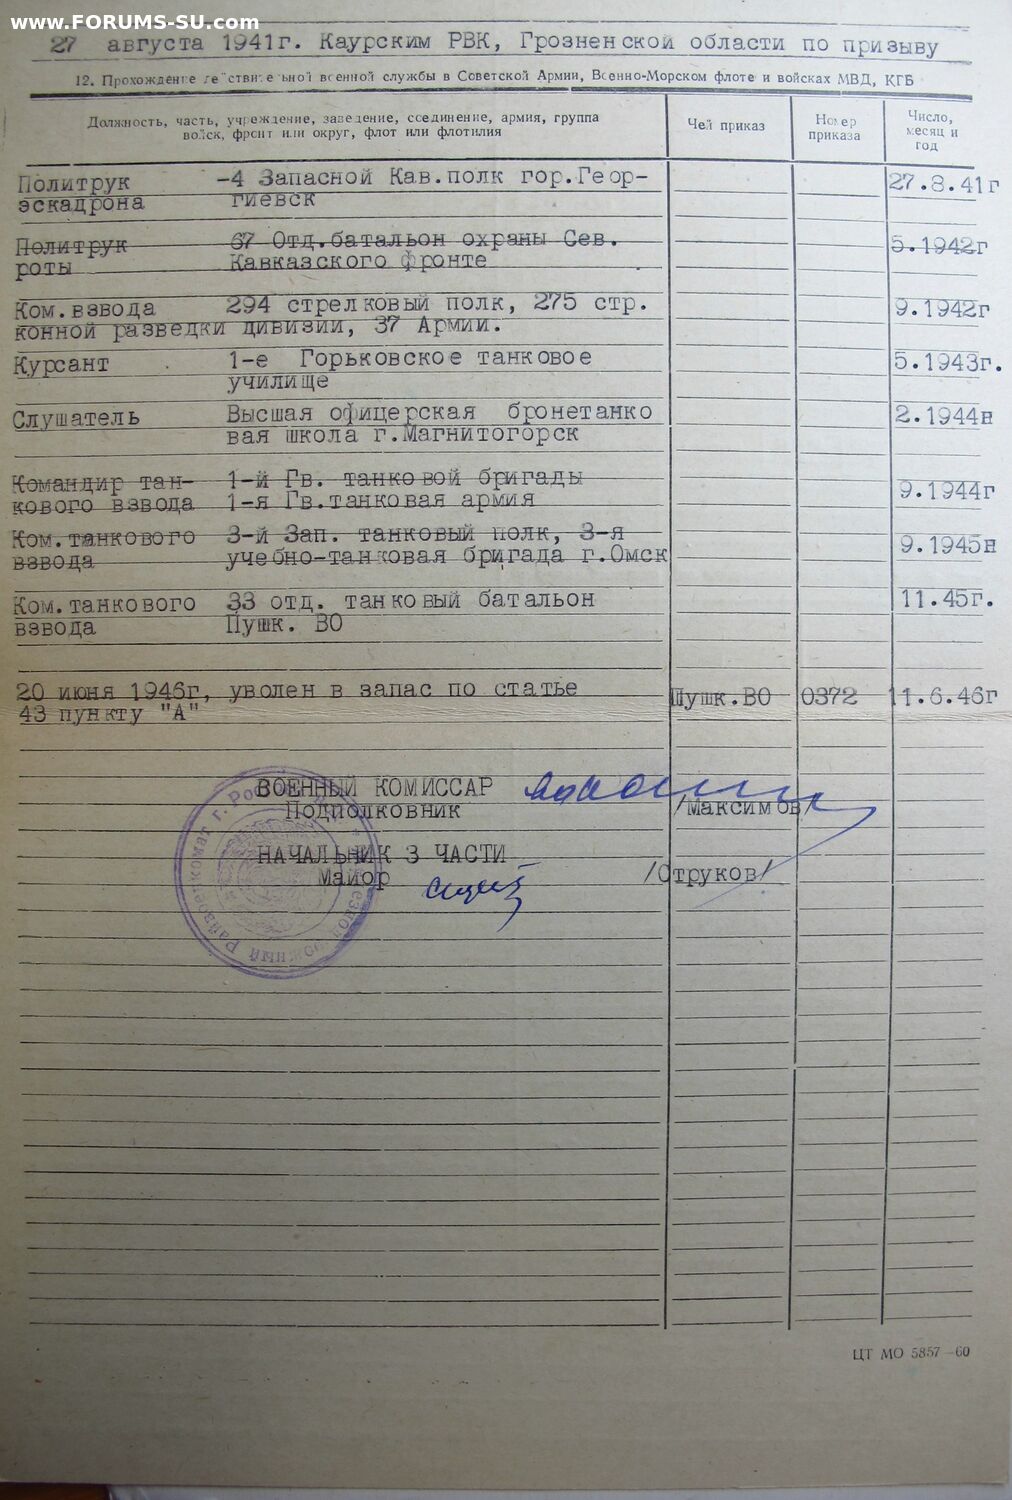 www.FORUMS-SU.com
27 августа 1941г. Каурским РВК, Грозненской области по призыву
12. Прохождение действительной военной службы в Советской Армии, Военно-Морском флоте и войсках МВД, КГБ
Должность, часть, учреждение, заведение, соединение, армия, группа
войск, фронт или округ, флот или флотилия
Чей приказ
Номер
приказа
Число,
месяц и
год
Политрук -4 Запасной Кав.полк гор.Геор- 27.8.41г
эскадрона гиевск
Политрук 67 Отд.батальон охраны Сев. 5.1942г
роты Кавказского фронте
Ком.взвода 294 стрелковый полк, 275 стр. 9.1942г
конной разведки дивизии, 37 Армии.
Курсант 1-е Горьковское танковое 5.1943г.
училище
Слушатель Высшая офицерская бронетанко 2.1944н
вая школа г.Магнитогорск
Командир тан- 1-й Гв. танковой бригады 9.1944г
кового взвода 1-я Гв.танковая армия
Ком.танкового 3-й Зап. танковый полк, 3-я 9.1945н
взвода учебно-танковая бригада г.Омск
Ком.танкового 33 отд. танковый батальон 11.45г.
взвода Пушк. ВО
20 июня 1946г, уволен в запас по статье Пушк.ВО 0372 11.6.46г
43 пункту "А"
ВОЕННЫЙ КОМИССАР
Подполковник /Максимов/
НАЧАЛЬНИК 3 ЧАСТИ
Майор /Струков/
ЦТ МО 5857—60